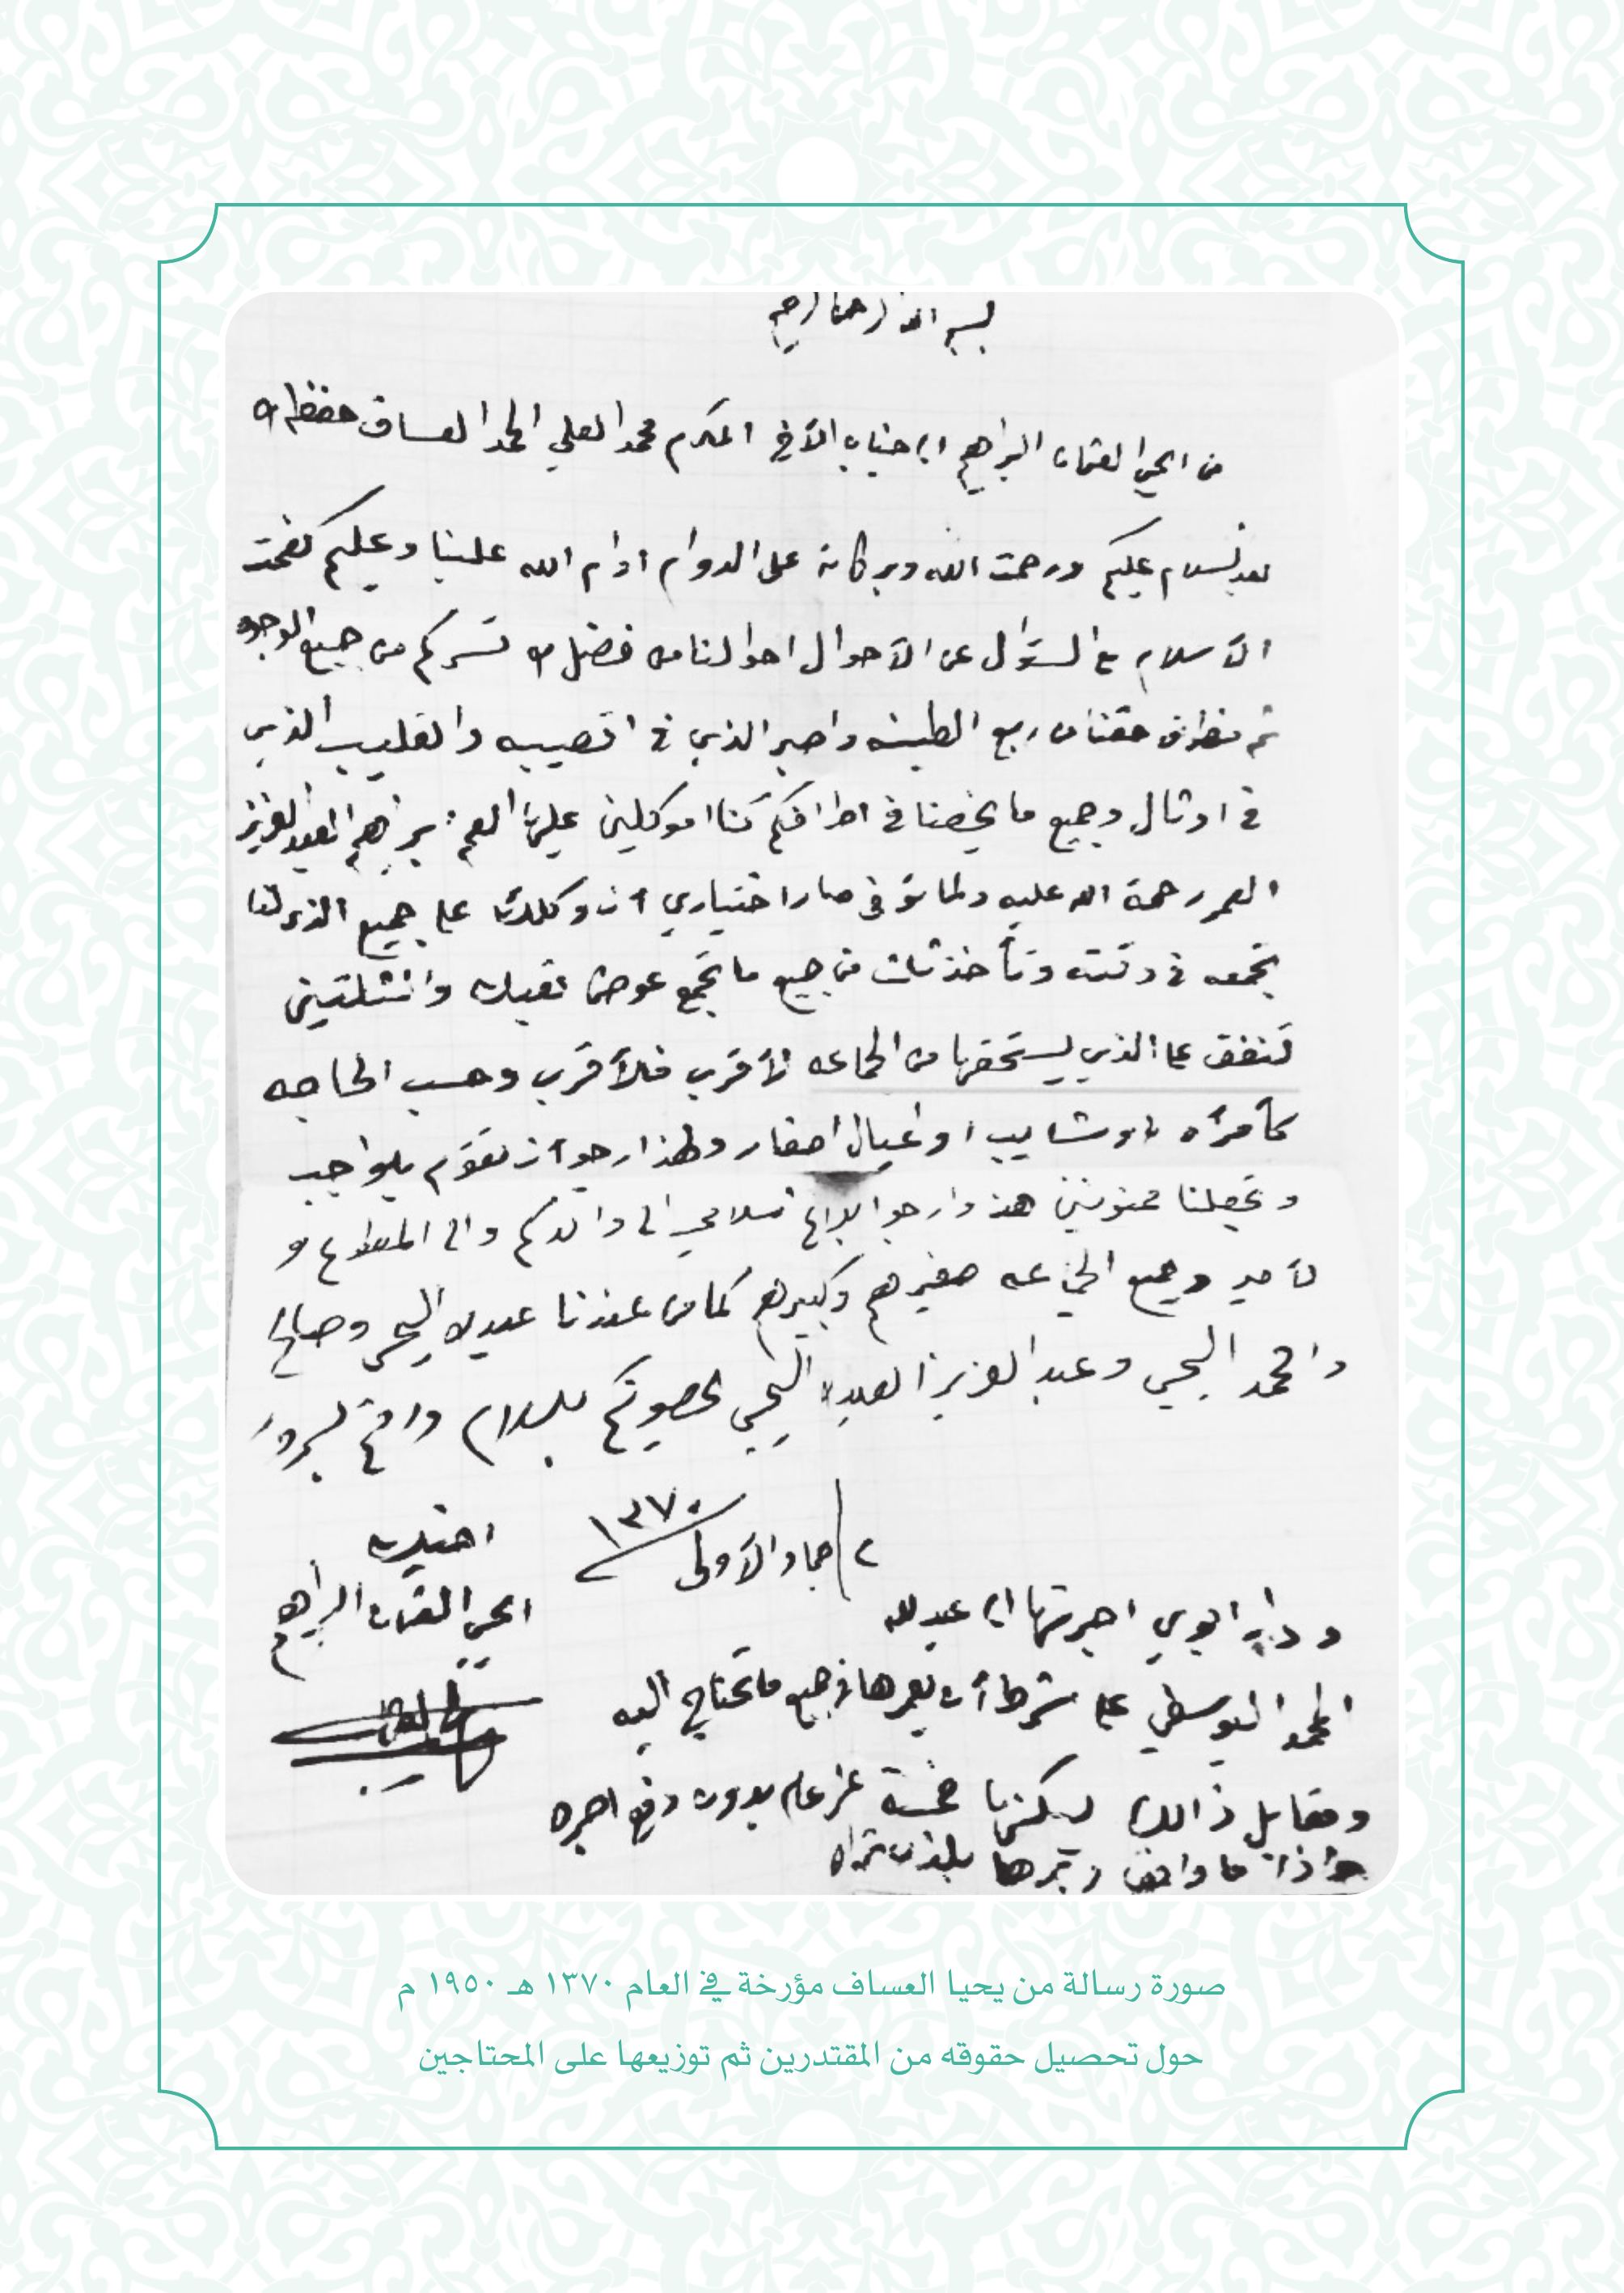 بسم الله الرحمن الرحيم
من يحيا العثمان البراهيم الى جناب الأخ المكرم محمد العلي المحمد العساف حفظه الله
بعد السلام عليكم ورحمت الله وبركاته على الدوام ادام الله علينا وعليكم نعمت
الأسلام مع السؤال عن الأحوال احوالنا من فضل الله تسركم من جميع الوجوه
ثم من طرف حقنا من ربع الذي في اقصيبه والقليب الذي
في اوثال وجميع ما يخصنا في اطرافكم كنا موكلين عليها العم براهيم العبدالعزيز
العمر رحمة الله عليه ولما توفى صار اختياري أن وكلك على جميع الذي لنا
تجمعه في وقته وتأخذ ثلث من جميع ما تجمع عوض تعبك والثلثين
تنفق على الذي يستحقها من الجماعه لأقرب فلأقرب وحسب الحاجه
كأمرأه او شايب او عيال اصغار ولهذا ارجو أن تقوم بلواجب
وتجعلنا ممنونين هذ وارجو ابلاغ سلامي الى والدكم والى المطاوع و
لأمير وجميع الجماعه صغيرهم وكبيرهم كما من عندنا عبدالله اليحي وصالح
وامحمد اليحي وعبد العزيز العبدالله اليحي يخصونكم بلسلام ودمتم بسرور
٢/ جماد الأولى ١٣٧٠
اخيك
يحيا العثمان البراهيم
و دار ابوي اجرتها الى عبدلله
المحمد اليوسفي على شرط أن يعمرها من جميع ما تحتاج اليه
ومقابل ذالك يسكنها خمسة عشر عام بدون دفع اجره
واذا ما وافق دبرها بلذي تراه
صورة رسالة من يحيا العساف مؤرخة في العام ١٣٧٠ هـ ١٩٥٠ م
حول تحصيل حقوقه من المقتدرين ثم توزيعها على المحتاجين